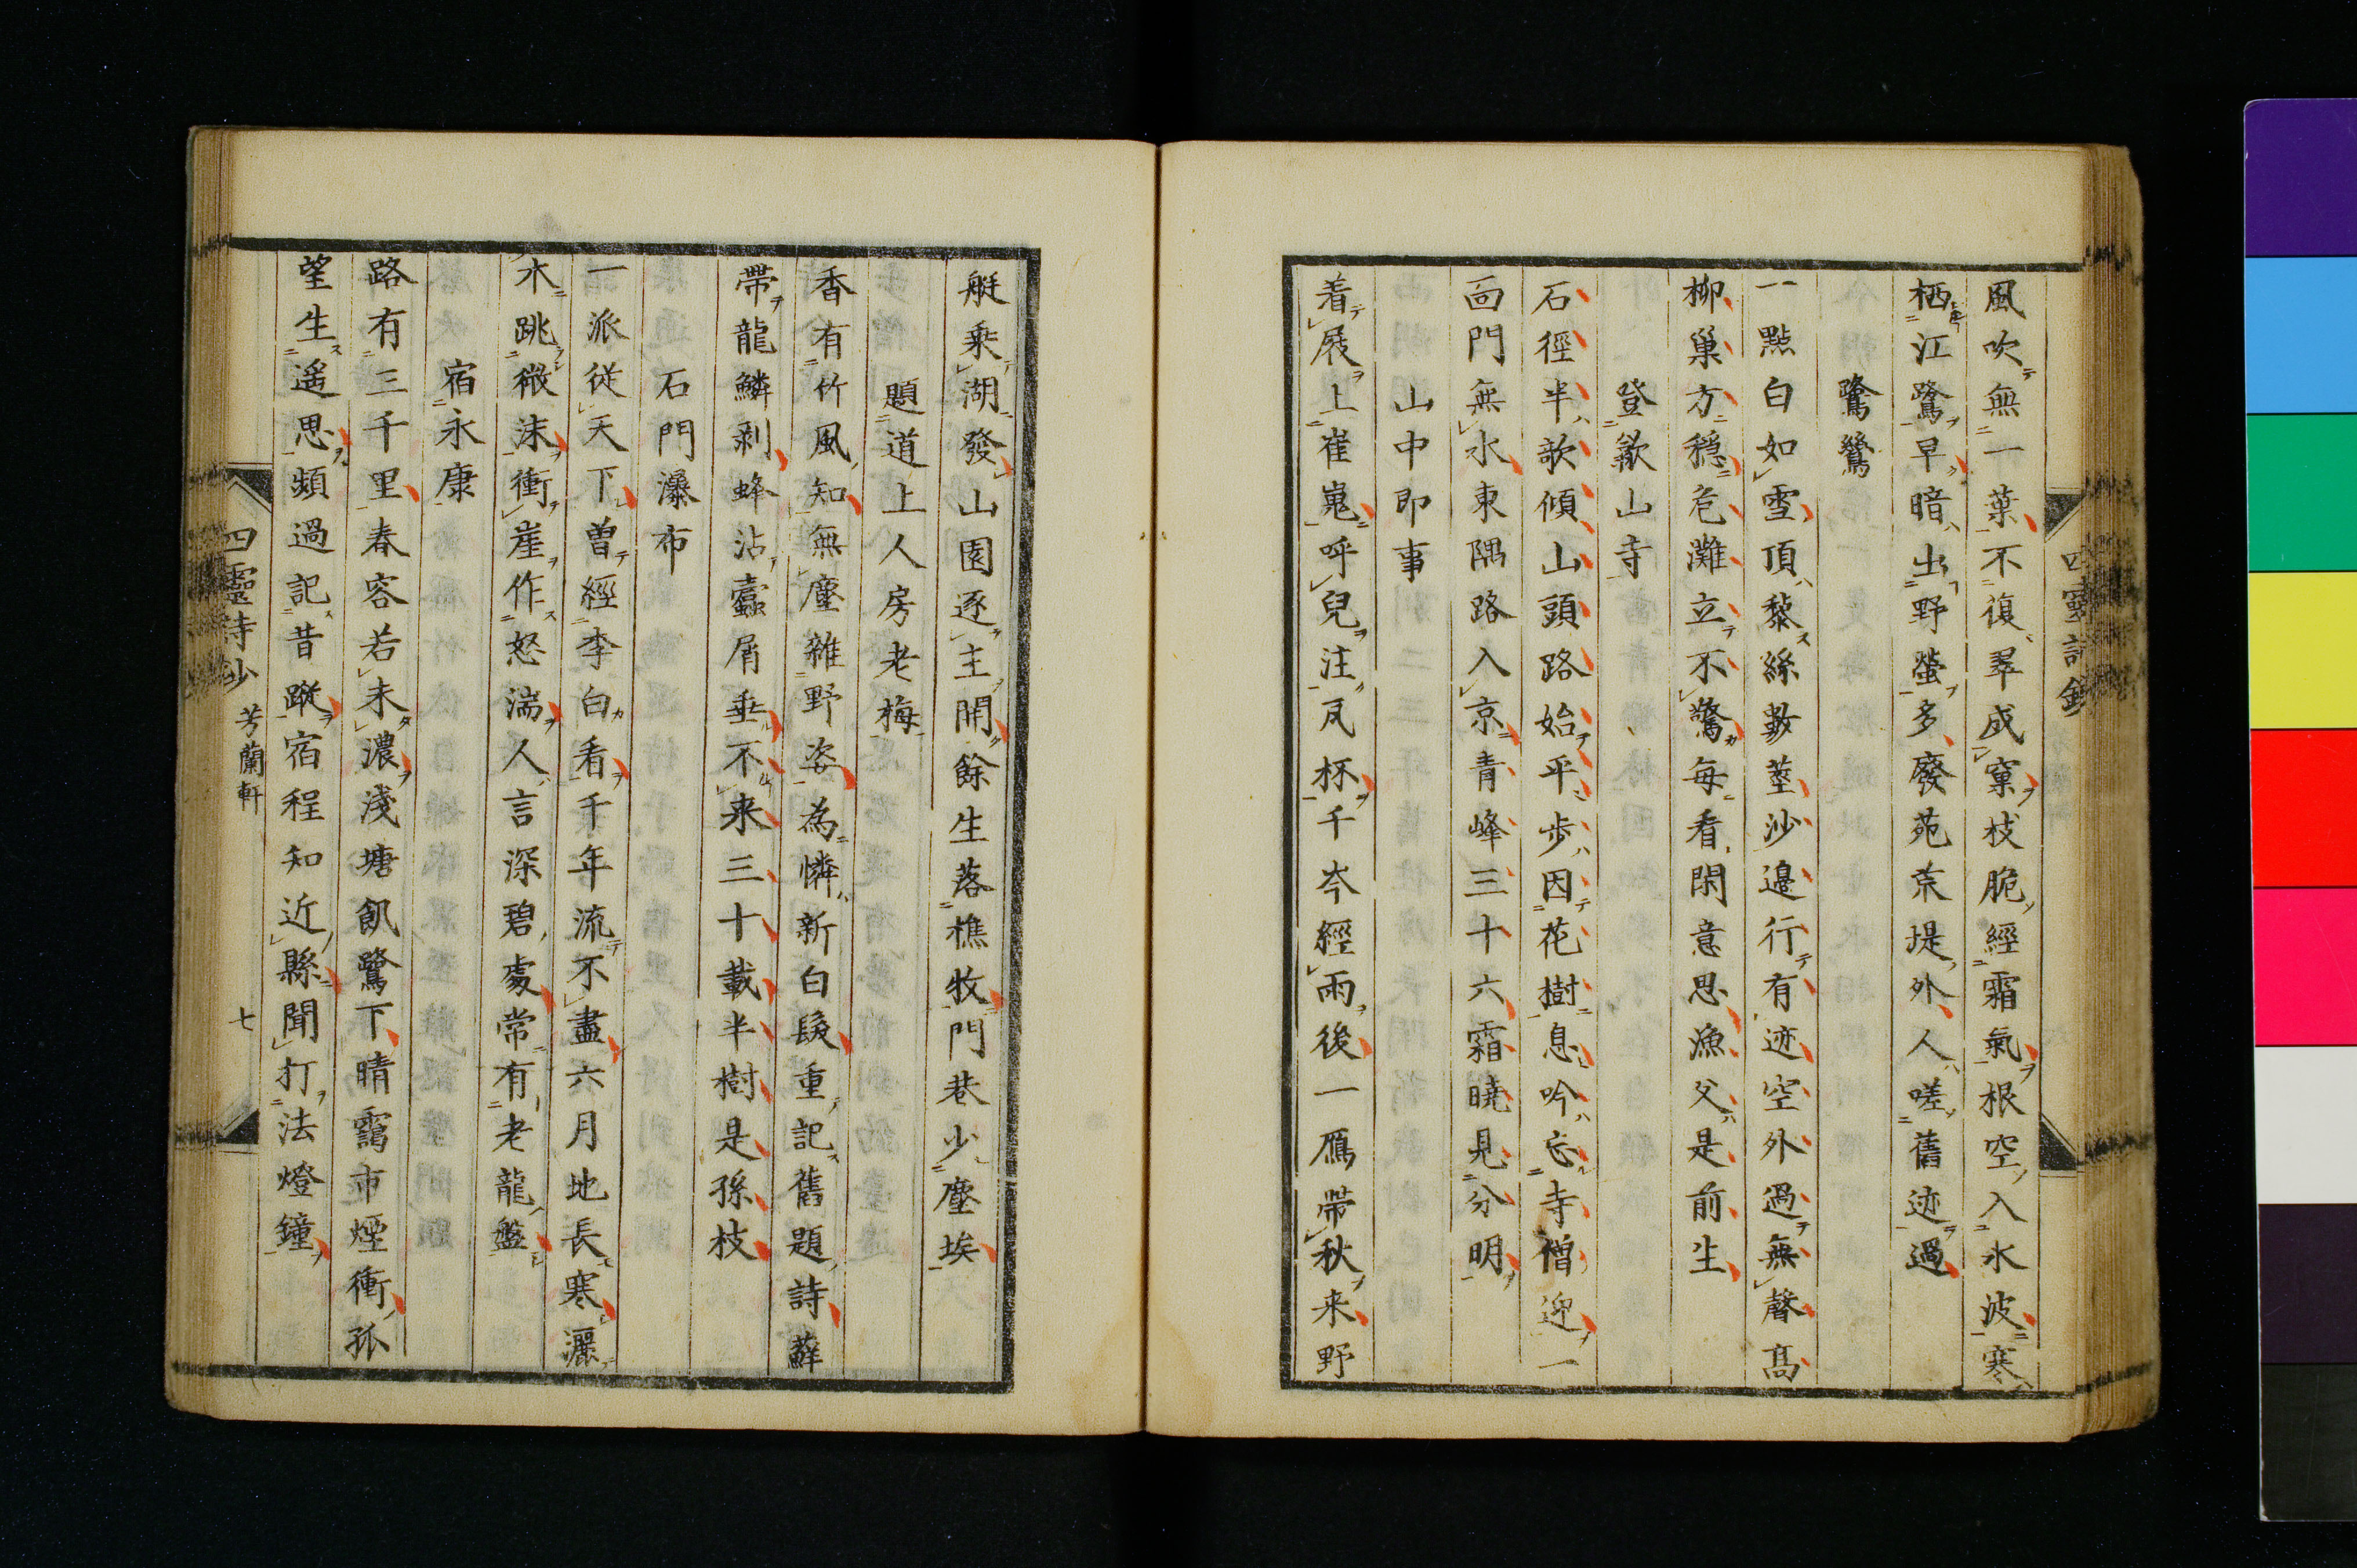 風吹無一葉不復翠成窠枝脆經霜氣根空入水波寒
栖江鷺早暗出野螢多廢苑荒堤外人嗟舊迹過
鷺鷥
一點白如雪頂黎絲數莖沙邊行有迹空外過無聲高
柳巢方穩危灘立不驚每看閑意思漁父是前生
登歙山寺
石徑半欹傾山頭路始平步因花樹息吟忘寺僧迎一
面門無水東隅路入京青峰三十六霜曉見分明
山中即事
着屐上崔嵬呼兒注瓦杯千岑經雨後一鴈帶秋来野
艇乗湖發山園逐主開餘生落樵牧門巷少塵埃
題道上人房老梅
香有竹風知無塵雜野姿為憐新白髮重記舊題詩蘚
帶龍鱗剥蜂沾蠧屑垂不来三十載半樹是孫枝
石門瀑布
一派従天下曽經李白看千年流不盡六月地長寒灑
木跳微沫衝崖作怒湍人言深碧處常有老龍盤
宿永康
路有三千里春容若未濃淺塘飢鷺下晴靄市煙衝孤
望生遥思頻過記昔蹤宿程知近縣聞打法燈鐘
四靈詩鈔 芳蘭軒 七